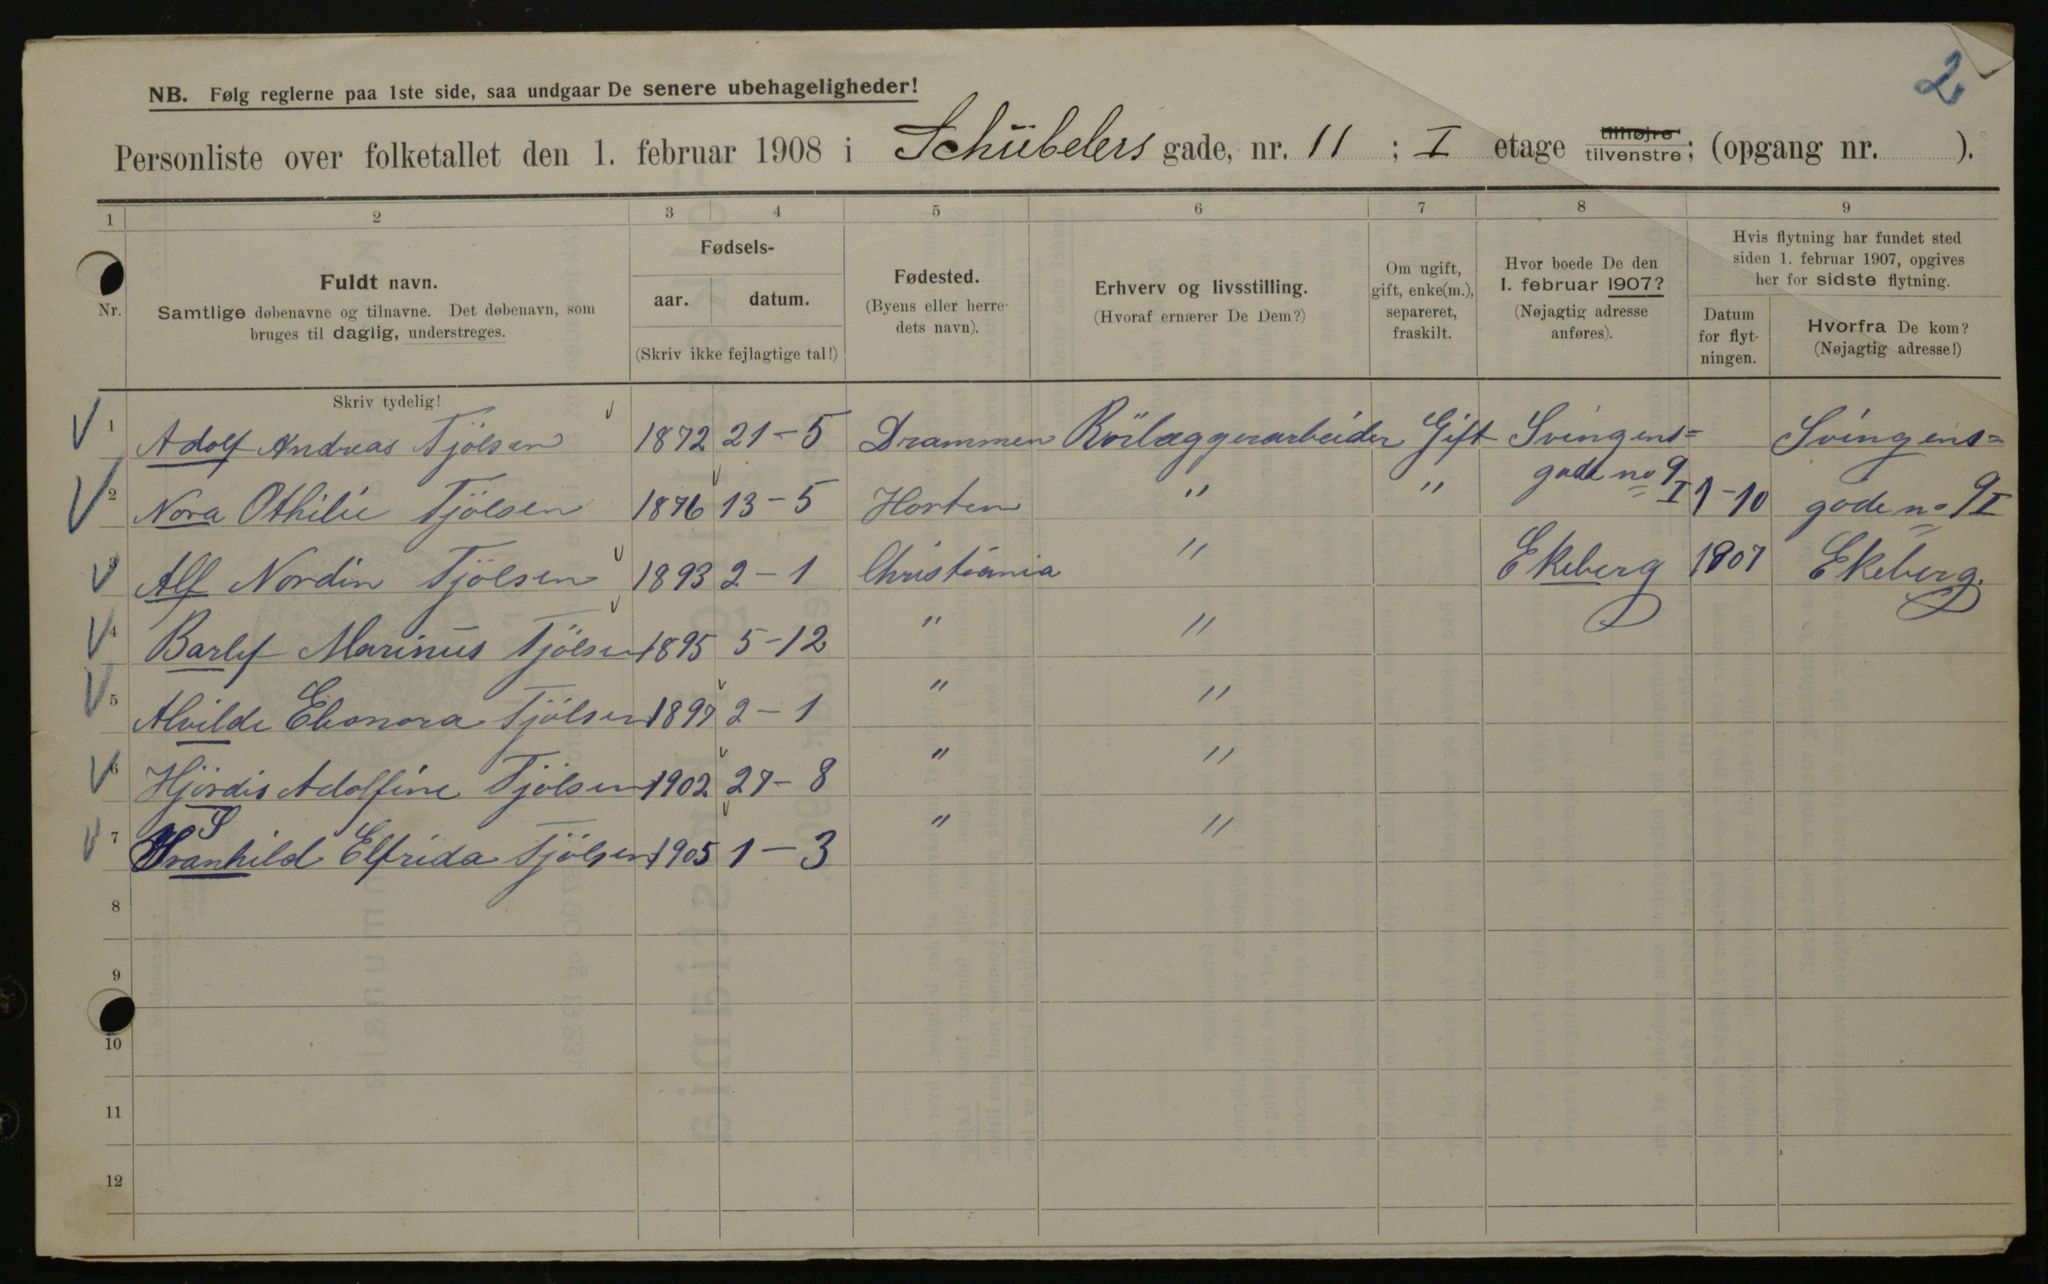 2
NB. Følg reglerne paa 1ste side, saa undgaar De senere ubehageligheder!
Personliste over folketallet den 1. februar 1908 i Schübelers gade, nr. 11 ; I etage tilhøjre tilvenstre; (opgang nr. ).
1 2 3 4 5 6 7 8 9
Nr.
Fuldt navn.
Samtlige døbenavne og tilnavne. Det døbenavn, som
bruges til daglig, understreges.
Fødsels-
aar. datum.
(Skriv ikke fejlagtige tal!)
Fødested.
(Byens eller herre-
dets navn).
Erhverv og livsstilling.
(Hvoraf ernærer De Dem?)
Om ugift,
gift, enke(m.),
separeret,
fraskilt.
Hvor boede De den
1. februar 1907?
(Nøjagtig adresse
anføres).
Hvis flytning har fundet sted
siden 1. februar 1907, opgives
her for sidste flytning.
Datum
for flyt-
ningen.
Hvorfra De kom?
(Nøjagtig adresse!)
Skriv tydelig!
1 Adolf Andreas Tjölsen 1872 21-5 Drammen Rörlæggerarbeider Gift Svingens= Svingens=
2 Nora Othilie Tjölsen 1876 13-5 Horten " " gade no 9 I 1-10 gade no 9 I
3 Alf Nordin Tjölsen 1893 2-1 Christiania " Ekeberg 1907 Ekeberg.
4 Barlef Marinus Tjölsen 1895 5-12 " "
5 Alvilde Elionora Tjölsen 1897 2-1 " "
6 Hjördis Adolfine Tjölsen 1902 27-8 " "
7 Svanhild Elfrida Tjölsen 1905 1-3 " "
8
9
10
11
12